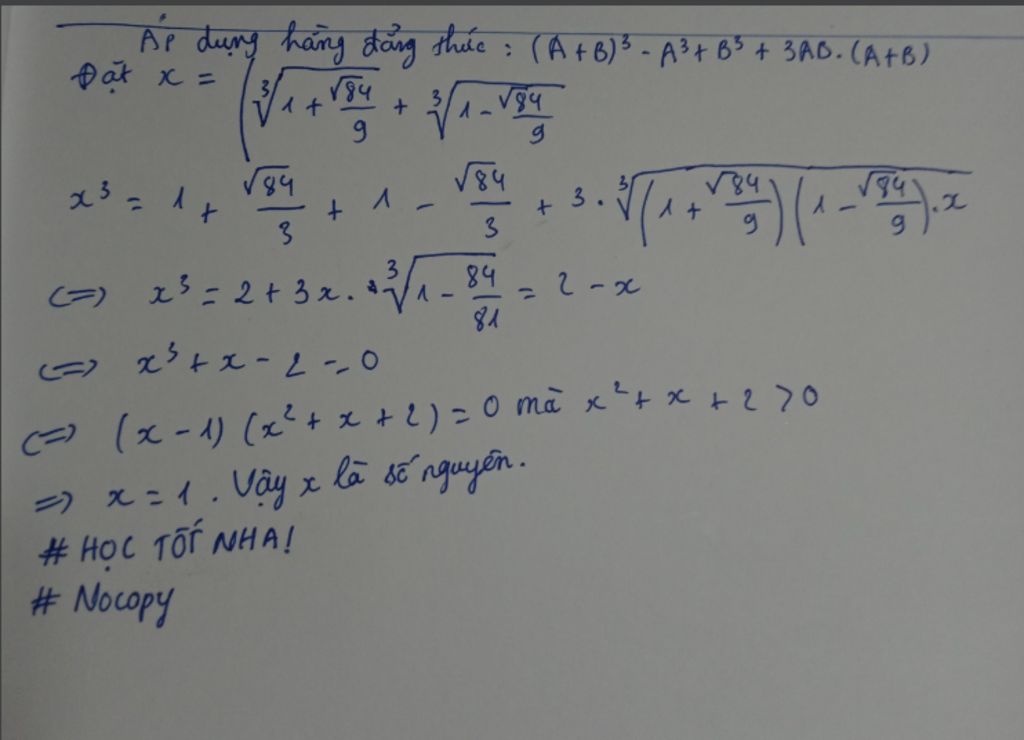 Áp dụng hằng đẳng thức : (A+B)³ - A³ + B³ + 3AB.(A+B)
Đặt x = (∛(1 + √84/9) + ∛(1 - √84/9)
x³ = 1 + √84/3 + 1 - √84/3 + 3 . ∛((1 + √84/9)(1 - √84/9).x)
<=> x³ = 2 + 3x . ∛(1 - 84/81) = 2 - x
<=> x³ + x - 2 = 0
<=> (x - 1) (x² + x + 2) = 0 mà x² + x + 2 > 0
=> x = 1 . Vậy x là số nguyên.
# HỌC TỐT NHA!
# Nocopy